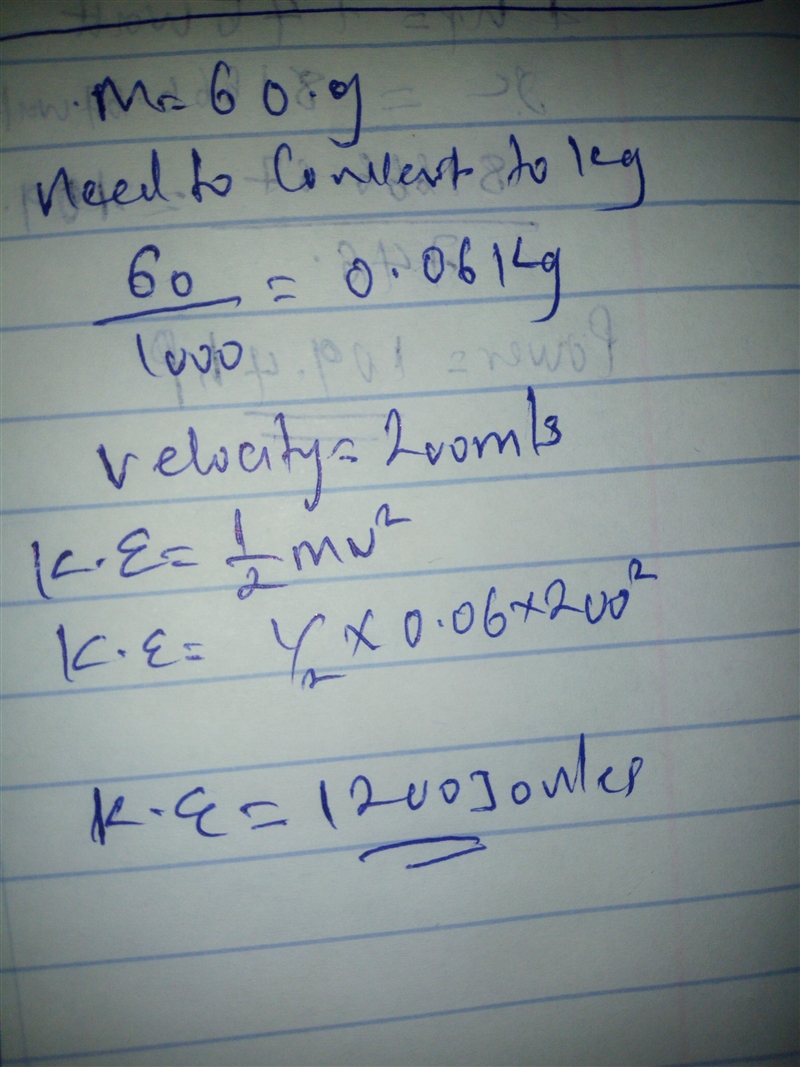 M= 60.g
Need to Convert to kg
60/1000 = 0.06 kg
Velocity= 200m/s
K.E= 1/2 mv²
K.E= 1/2 × 0.06 × 200²
K.E = 1200 Joules